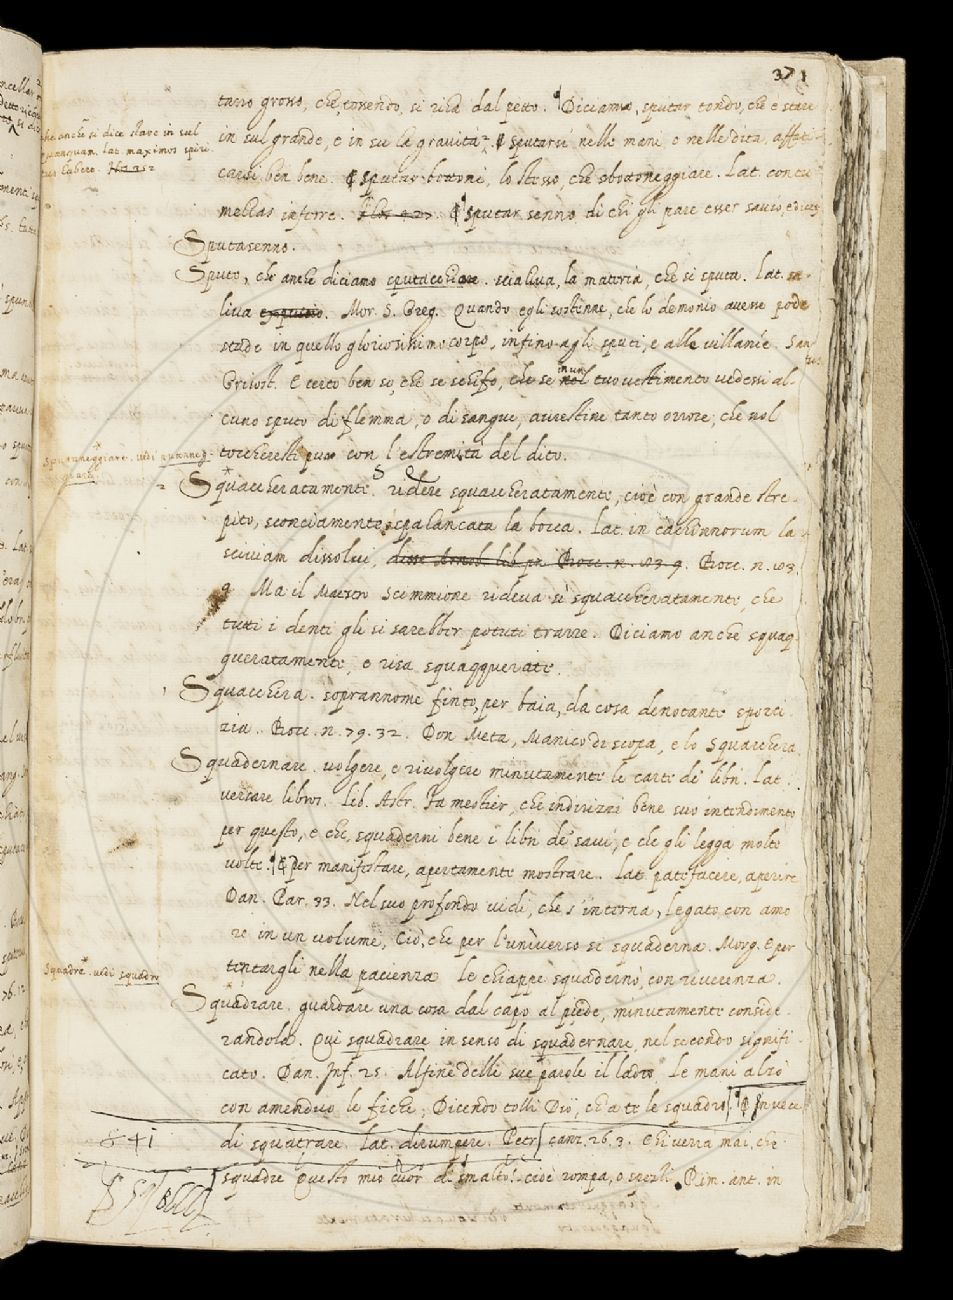 371
tarro grosso, che, tossendo, si ricà dal petto. Diciamo, sputar tondo, che è stare
in sul grande, e in su la gravità. ¶ sputarsi nelle mani, e nelle dita, affati-
carsi ben bene. ¶ sputar bottoni, lo stesso, che sbottoneggiare. Lat. contu
melias inferre. ¶ sputar senno di chi gli pare esser savio, e dicesi
Sputasenno.
Sputo, che anche diciamo sputacchio. scialiva, la materia, che si sputa. Lat. sa-
liva. Mor. S. Greg. Quando egli sostenne, che lo demonio avesse pode
stade in quello gloriosissimo corpo, infino agli sputi, e alle villanie. San
Grisost. E certo ben so, che se schifo, che se in un tuo vestimento vedessi al-
cuno sputo di flemma, o di sangue, avrestine tanto orrore, che nol
toccheresti pure con l'estremità del dito.
Squaccheratamente. ridere squaccheratamente, cioè con grande stre-
pito, sconciamente, spalancata la bocca. Lat. in cachinnorum la
sciviam dissolvi, disse Arnob. lib. pr. Bocc. n. 83. 9. Bocc. n. 83.
9. Ma il Maestro Scimmione rideva sì squaccheratamente, che
tutti i denti gli si sarebber potuti trarre. Diciamo anche squaq-
queratamente, e risa squaqquerate.
Squacchera. soprannome finto, per baia, da cosa denotante sporci-
zia. Bocc. n. 79. 32. Don Meta, Manico di scopa, e lo Squacchera.
Squadernare. volgere, e rivolgere minutamente le carte de' libri. Lat.
versare libros. Lib. Astr. Fa mestier, che indirizzi bene suo intendimento
per questo, e che squaderni bene i libri de' savi, e che gli legga molte
volte. ¶ per manifestare, apertamente mostrare. Lat. patefacere, aperire
Dan. Par. 33. Nel suo profondo vidi, che s'interna, Legato con amo
re in un volume, Ciò, che per l'universo si squaderna. Morg. E per
tentargli nella pacienza Le chiappe squadernò, con riverenza.
Squadre. vedi squadra
Squadrare. guardare una cosa dal capo al piede, minutamente conside-
randola. Qui squadrare in senso di squadernare, nel secondo signifi-
cato. Dan. Inf. 25. Alfine delle sue parole il ladro, Le mani alzò
con amenduo le fiche, Dicendo tolli Dio, ch'a te le squadro. ¶ In vece
di squatrare. Lat. dirumpere. Petr. canz. 26. 3. Chi verrà mai, che
squadre Questo mio cuor di smalto? cioè rompa, o spezzi. Rim. ant. in